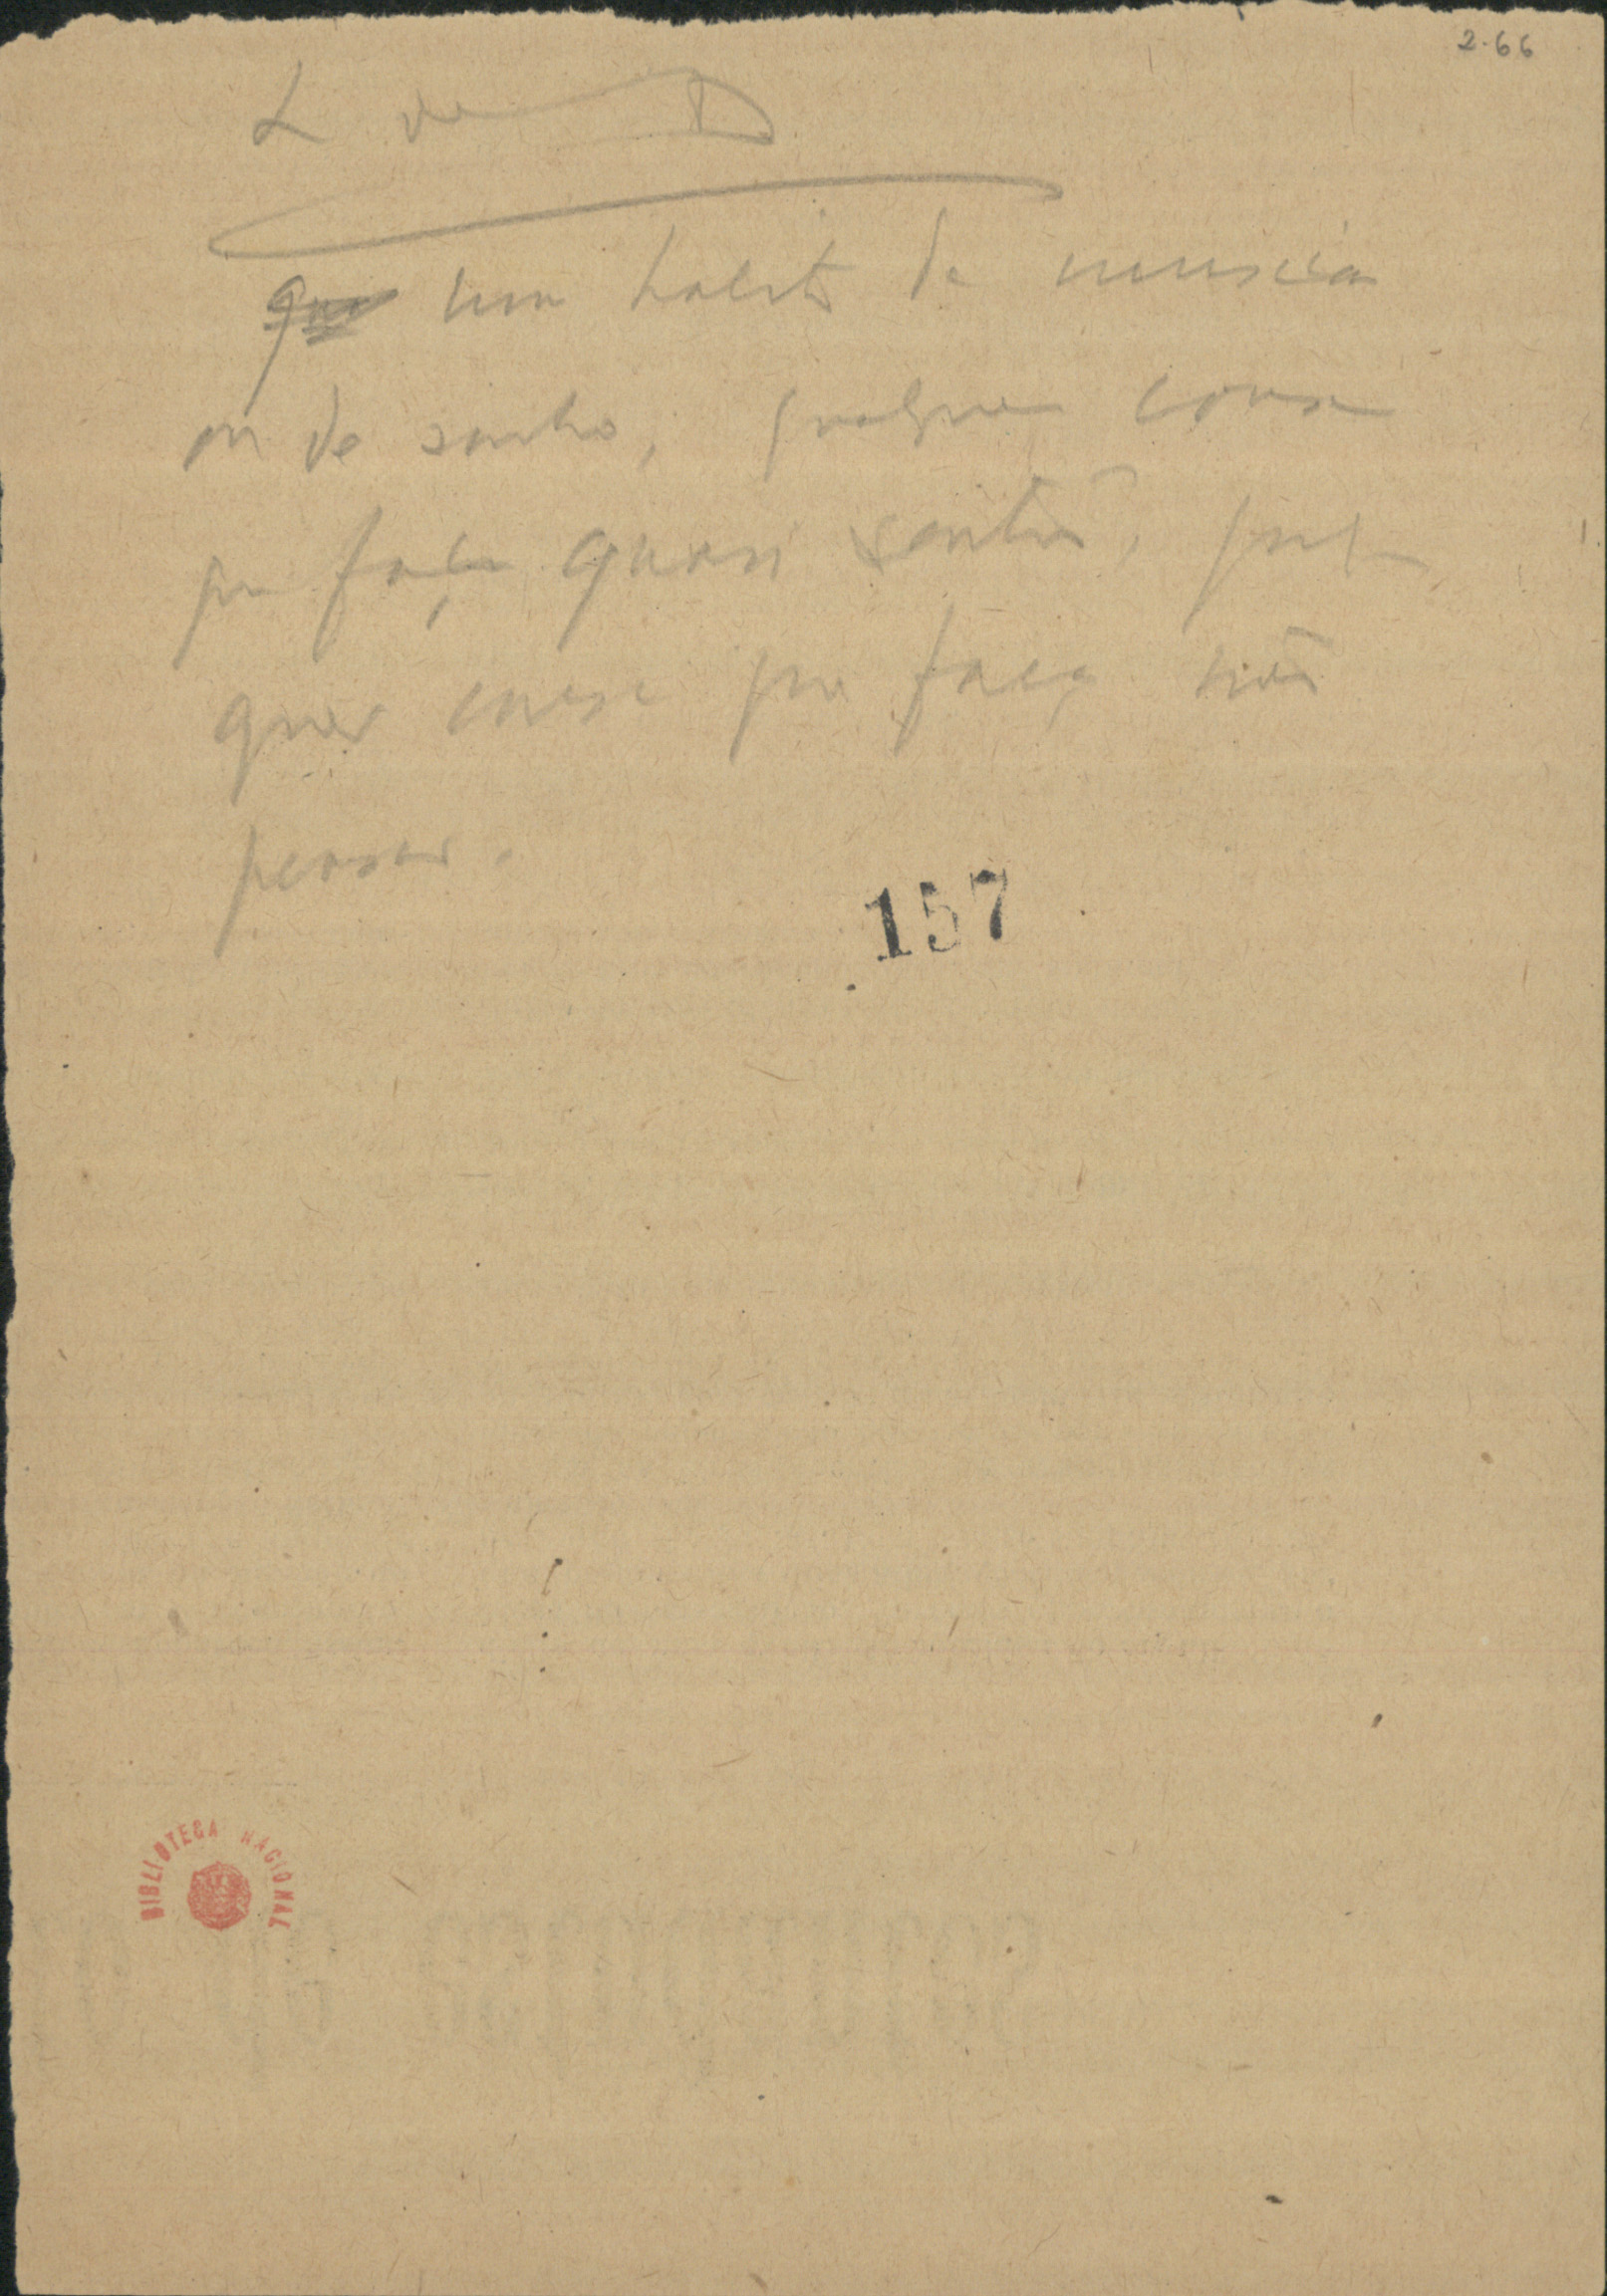 2-66
L do D
que um halito de musica
ou de sonho, qualquer cousa
que faça quasi sentir, qual-
quer cousa que faça não
pensar.
157
BIBLIOTECA NACIONAL